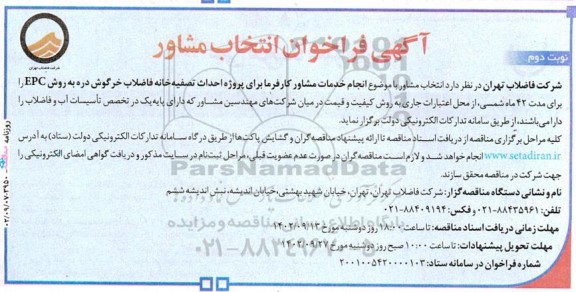 آگهی فراخوان انتخاب مشاور
نوبت دوم
شرکت فاضلاب تهران
شرکت فاضلاب تهران در نظر دارد انتخاب مشاور با موضوع انجام خدمات مشاور کارفرما برای پروژه احداث تصفیه خانه فاضلاب خرگوش دره به روش EPC را
برای مدت ۴۲ ماه شمسی، از محل اعتبارات جاری به روش کیفیت و قیمت در میان شرکت های مهندسین مشاور که دارای پایه یک در تخصص تأسیسات آب و فاضلاب را
دارا می باشند، از طریق سامانه تدارکات الکترونیکی دولت برگزار نماید.
کلیه مراحل برگزاری مناقصه از دریافت اسناد مناقصه تا ارائه پیشنهاد مناقصه گران و گشایش پاکت ها از طریق درگاه سامانه تدارکات الکترونیکی دولت (ستاد) به آدرس
www.setadiran.ir انجام خواهد شد و لازم است مناقصه گران در صورت عدم عضویت قبلی، مراحل ثبت نام در سایت مذکور و دریافت گواهی امضای الکترونیکی را
جهت شرکت در مناقصه محقق سازند.
نام و نشانی دستگاه مناقصه گزار: شرکت فاضلاب تهران، تهران، خیابان شهید بهشتی، خیابان اندیشه، نبش اندیشه ششم
تلفن: ۸۸۴۳۵۹۶۱-۰۲۱ و فکس: ۸۸۴۰۹۱۹۴-۰۲۱
مهلت زمانی دریافت اسناد مناقصه: تا ساعت ۱۸:۰۰ روز دوشنبه مورخ ۱۴۰۲/۰۹/۱۳
مهلت تحویل پیشنهادات: تا ساعت ۱۰:۰۰ صبح روز دوشنبه مورخ ۱۴۰۲/۰۹/۲۷
شماره فراخوان در سامانه ستاد: ۲۰۰۱۰۰۵۴۲۰۰۰۰۱۰۳
ParsNamadData
پایگاه اطلاع رسانی مناقصه و مزایده
۰۲۱-۸۸۳۴۹۶۷۰
روزنامه